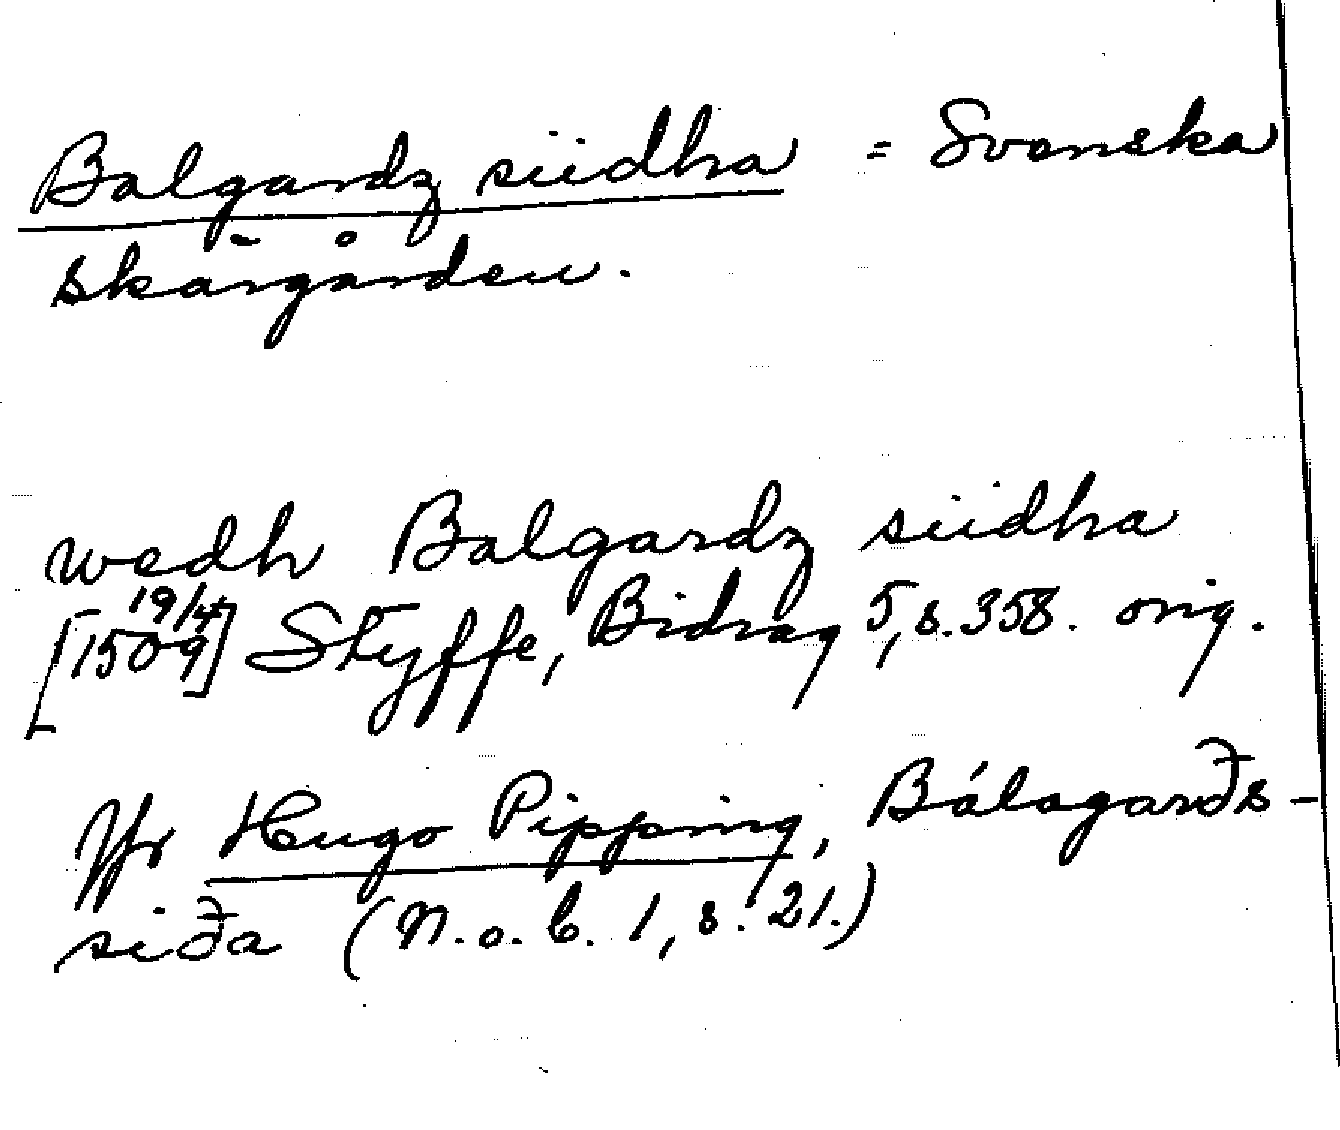 Balgardz siidha = Svenska
skärgården.
wedh Balgardz siidha
[19/4 1509] Styffe, Bidrag 5, s. 358. orig.
Jfr Hugo Pipping, Bálagarðs-
siða (N. o. B. 1, s. 21.)